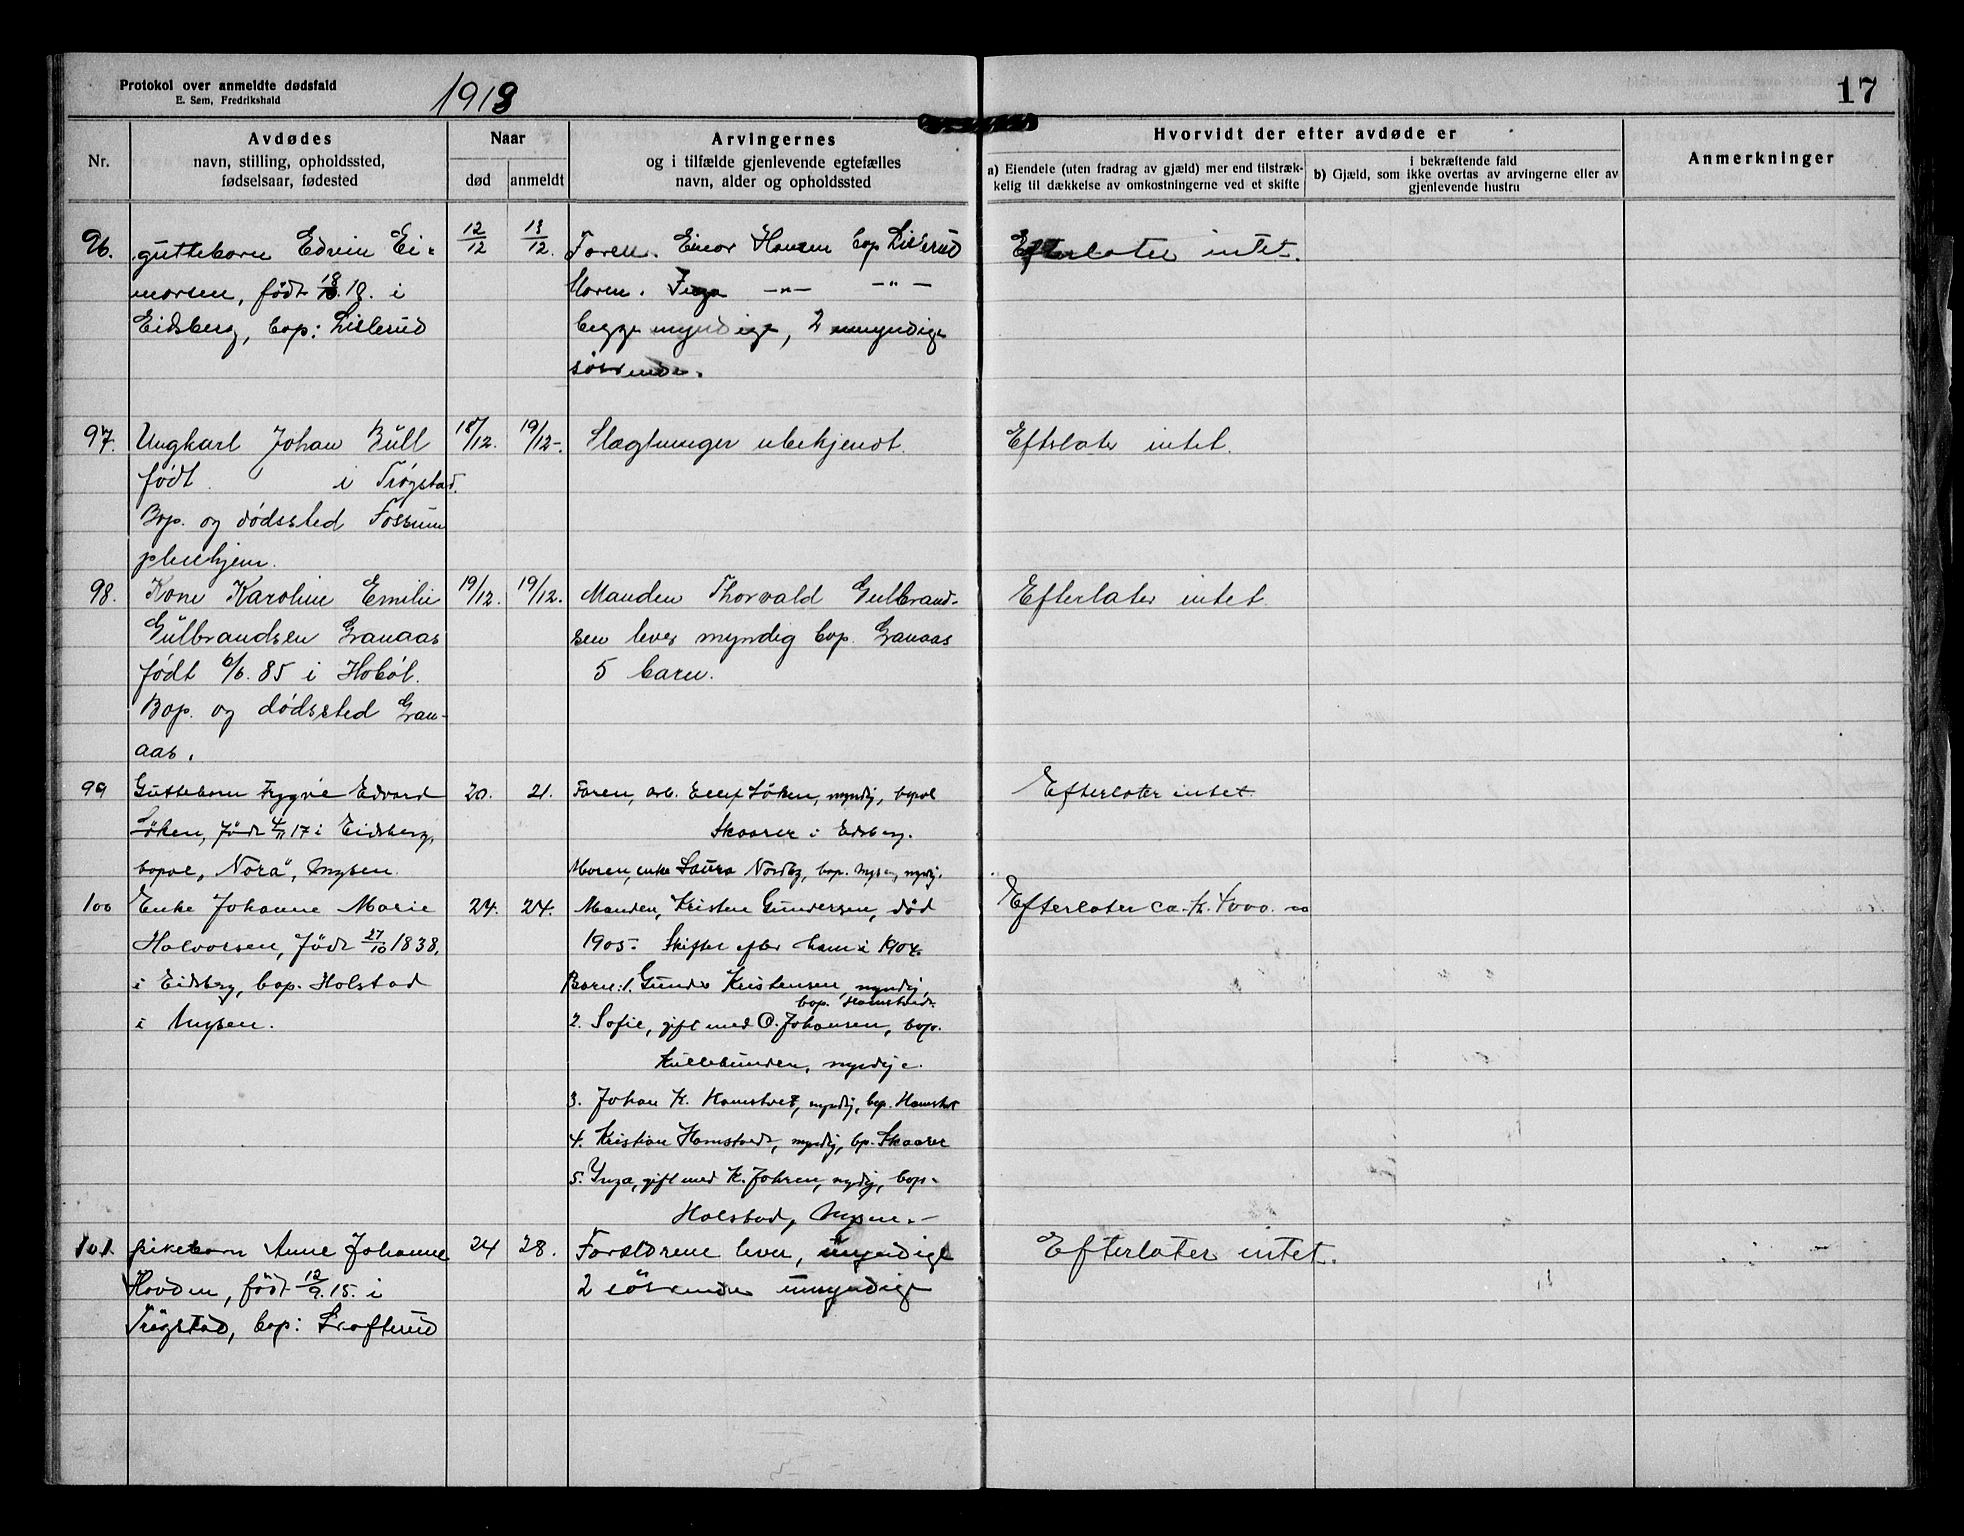 Protokol over anmeldte dødsfald
E. Søm, Fredrikshald
1918
17
Nr.
Avdødes
navn, stilling, opholdssted,
fødselsaar, fødested
Naar
død
anmeldt
Arvingernes
og i tilfælde gjenlevende egtefælles
navn, alder og opholdssted
Hvorvidt der efter avdøde er
a) Eiendele (uten fradrag av gjæld) mer end tilstræk-
kelig til dækkelse av omkostningerne ved et skifte
i bekræftende fald
b) Gjæld, som ikke overtas av arvingerne eller av
gjenlevende hustru
Anmerkninger
96.
guttebarn Edvin Ei-
narsen, født 18. i
Eidsberg, bop: Lislerud
12/12
13/12.
Faren. Einar Hansen bop Lislerud
Moren. Inga -"- -"-
begge myndige, 2 umyndige
søskende.
Efterlater intet.
97.
Ungkarl Johan Büll
født i Trøgstad.
Bop. og dødssted Fossum
pleiehjem.
18/12.
19/12-
Slægtninger ubekjendt.
Efterlater intet.
98.
Kone Karoline Emilie
Gülbrandsen Granaas
født 6/6. 85 i Hobøl.
Bop. og dødssted Gran-
aas.
19/12.
19/12.
Manden Thorvald Gulbrand-
sen lever myndig bop. Granaas
5 barn.
Efterlater intet.
99
Guttebarn Trygve Edvard
Løken, født 4/11 17 i Eidsberg,
bopæl „Nora", Mysen.
20.
21.
Faren, arb. Ellef Løken, myndig, bopæl
Skaarer i Eidsberg.
Moren, enke Laura Nordby, bop. Mysen, myndig.
Efterlater intet.
100
Enke Johanne Marie
Halvorsen, født 27/10 1838,
i Eidsberg, bop. Holstad
i Mysen.
24.
24.
Manden, Kristen Gundersen, død
1905. Skiftet efter ham i 1904.
Barn: 1. Gunder Kristensen, myndig,
bop. Hamstvedt.
2. Sofie, gift med O. Johansen, bop.
Kullebunden, myndig.
3. Johan K. Hamstvet, myndig, bop. Hamstvet
4. Kristian Hamstvedt, myndig, bop. Skaarer
5. Inga, gift med K. Johren, myndig, bop.
Holstad, Mysen.-
Efterlater ca. kr. 4000.
101.
pikebarn Anne Johanne
Hovden, født 12/9. 15. i
Trøgstad, bop: Krafterud
24
28.
Forældrene lever, myndige
2 søskende umyndige
Efterlater intet.